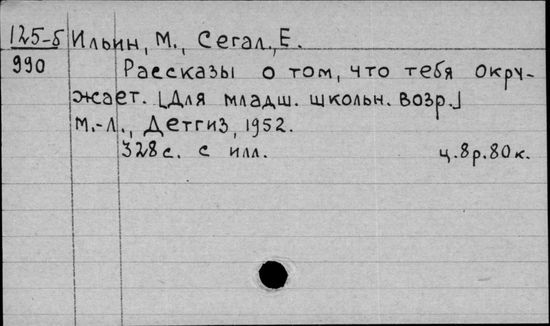 125-5 Ильин, М., Сегал., Е.
990 Рассказы о том, что тебя окру-
жает. [Для младш. школьн. возр.]
М.-Л., Детгиз, 1952.
328 с. с илл. ц. 8 р. 80 к.